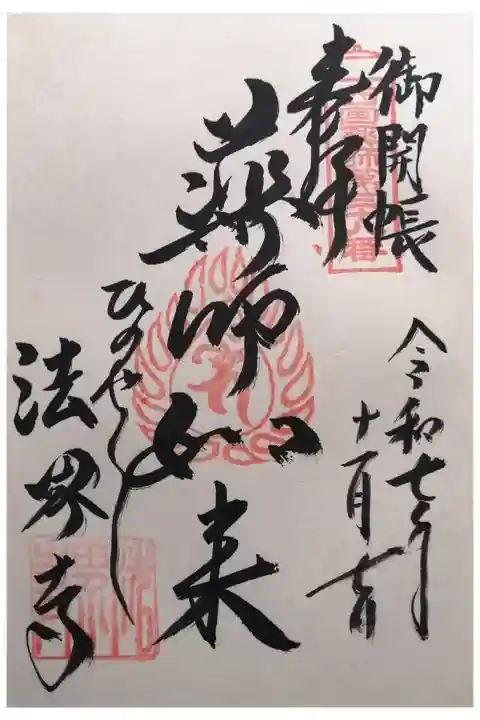 御開帳
奉拝
薬師如来
ひのやくし
法界寺
令和七年